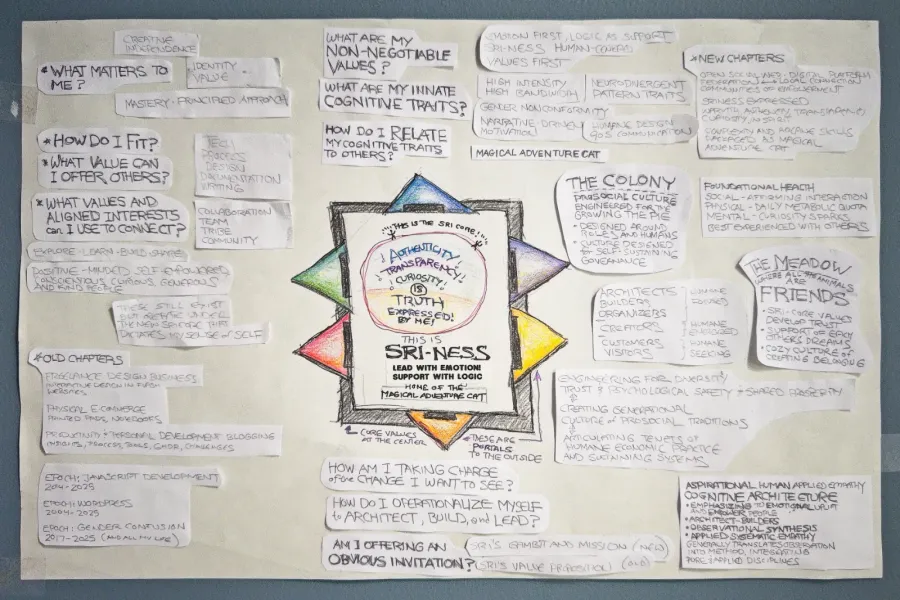 CREATIVE
INDEPENDENCE
* WHAT MATTERS TO
ME?
IDENTITY
VALUE
MASTERY-PRINCIPLED APPROACH
* HOW DO I FIT?
* WHAT VALUE CAN
I OFFER OTHERS?
TECH
PROCESS
DESIGN
DOCUMENTATION
WRITING
* WHAT VALUES AND
ALIGNED INTERESTS
can I USE TO CONNECT?
COLLABORATION
TEAM
TRIBE
COMMUNITY
EXPLORE-LEARN-BUILD-SHARE
POSITIVE-MINDED SELF EMPOWERED
CONSCIENTIOUS, CURIOUS, GENEROUS
AND KIND PEOPLE
THESE STILL EXIST
BUT
THE NEW SRI CORE THAT
DICTATES MY SENSE of SELF
* OLD CHAPTERS
FREELANCE DESIGN BUSINESS
WEBSITES
PHYSICAL E-COMMERCE
PRINTED PADS, NOTEBOOKS
PRODUCTIVITY + PERSONAL DEVELOPMENT BLOGGING
INSIGHTS, PROCESS, TOOLS, CHALLENGES
EPOCH: JAVASCRIPT DEVELOPMENT
2014-2025
EPOCH: WORDPRESS
2004-2025
EPOCH: GENDER CONFUSION
2017-2025 (AND ALL MY LIFE)
WHAT ARE MY
NON-NEGOTIABLE
VALUES?
WHAT ARE MY INNATE
COGNITIVE TRAITS?
HOW DO I RELATE
MY COGNITIVE TRAITS
TO OTHERS?
EMOTION FIRST, LOGIC AS SUPPORT
SRI-NESS HUMAN-CENTERED
VALUES FIRST
HIGH INTENSITY
HIGH BANDWIDTH
NEURODIVERGENT
PATTERN TRAITS
GENDER NONCONFORMITY
NARRATIVE-DRIVEN
MOTIVATION
HUMANE DESIGN
AND COMMUNICATION
MAGICAL ADVENTURE CAT
* THIS IS THE SRI CORE! *
AUTHENTICITY
TRANSPARENCY!
CURIOSITY
IS
TRUTH
EXPRESSED!
BY ME!
THIS IS
SRI-NESS
LEAD WITH EMOTION!
SUPPORT WITH LOGIC
HOME OF THE
MAGICAL ADVENTURE CAT
CORE VALUES
AT THE CENTER
THESE ARE
PORTALS
TO THE OUTSIDE
HOW AM I TAKING CHARGE
of the CHANGE I WANT TO SEE?
HOW DO I OPERATIONALIZE MYSELF
to ARCHITECT, BUILD, and LEAD?
AM I OFFERING AN
OBVIOUS INVITATION?
SRI'S GAMBIT AND MISSION (NEW)
SRI'S VALUE PROPOSITION (OLD)
* NEW CHAPTERS
OPEN SOCIAL WEB - DIGITAL PLATFORM
COMMUNITIES OF EMPOWERMENT
SRINESS EXPRESSED
CURIOSITY IN SPIRIT
COMPLEXITY AND ARCANE SKILLS
AS MAGICAL
ADVENTURE CAT
THE COLONY
PROSOCIAL CULTURE
ENGINEERED FOR THE
GROWING THE PIE
• DESIGNED AROUND
ROLES AND HUMANS
• CULTURE DESIGNED
BY SELF-SUSTAINING
GOVERNANCE
FOUNDATIONAL HEALTH
SOCIAL - AFFIRMING INTERACTION
PHYSICAL - DAILY METABOLIC QUOTA
MENTAL - CURIOSITY SPARKS
BEST EXPERIENCED WITH OTHERS
ARCHITECTS
BUILDERS
ORGANIZERS
CREATORS
CUSTOMERS
VISITORS
HUMANE
FOCUSED
HUMANE
ENERGISED
HUMANE
SEEKING
THE MEADOW
WHERE ALL THE ANIMALS
ARE
FRIENDS
• SRI-CORE VALUES
DEVELOP TRUST
• SUPPORT OF EACH
OTHERS DREAMS
• COZY CULTURE OF
CREATING BELONGING
ENGINEERING FOR DIVERSITY
TRUST + PSYCHOLOGICAL SAFETY + SHARED PROSPERITY
CREATING GENERATIONAL
CULTURE OF PROSOCIAL TRADITIONS
ARTICULATING TENETS OF
HUMANE ECONOMIC PRACTICE
AND SUSTAINING SYSTEMS
ASPIRATIONAL HUMAN APPLIED EMPATHY
COGNITIVE ARCHITECTURE
• EMPHASIZING TO EMOTIONAL UPLIFT
AND EMPOWER PEOPLE
• ARCHITECT-BUILDERS
• OBSERVATIONAL SYNTHESIS
• APPLIED SYSTEMATIC EMPATHY
GENERALLY TRANSLATES OBSERVATION
INTO METHOD, INTEGRATING
PURE + APPLIED DISCIPLINES